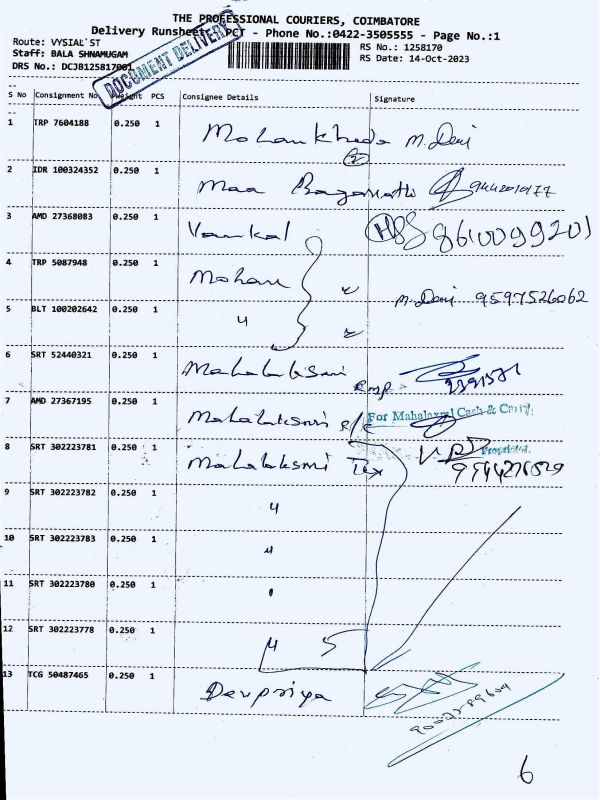 THE PROFESSIONAL COURIERS, COIMBATORE
Delivery Runsheet PCT - Phone No.:0422-3505555 - Page No.:1
Route: VYSIAL ST
Staff: BALA SHNAMUGAM
DRS No.: DCJB125817001
RS No.: 1258170
RS Date: 14-Oct-2023
DOCUMENT DELIVERY
S No Consignment No Weight PCS Consignee Details Signature
1 TRP 7604188 0.250 1 Mohan Kheda M. Devi
2 IDR 100324352 0.250 1 Maa
3 AMD 27368083 0.250 1 8610099201
4 TRP 5087948 0.250 1 Mohan
M. Devi 9597526062
5 BLT 100202642 0.250 1 "
6 SRT 52440321 0.250 1 Mahalaksmi
7 AMD 27367195 0.250 1 Mahalaksmi c/c For Mahalaxmi Cash & Carry
Proprietor
8 SRT 302223781 0.250 1 Mahalaksmi Tex
9 SRT 302223782 0.250 1 "
10 SRT 302223783 0.250 1 "
11 SRT 302223780 0.250 1 "
12 SRT 302223778 0.250 1 " 5
13 TCG 50487465 0.250 1 Devpriya
6